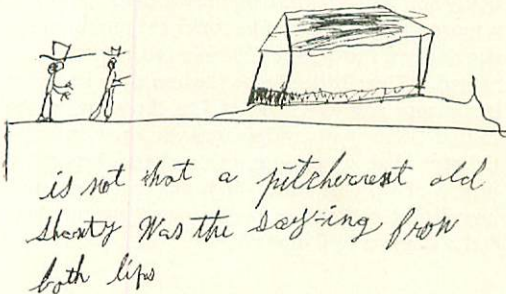 is not that a pitchercrest old
shanty Was the saying from
both lips